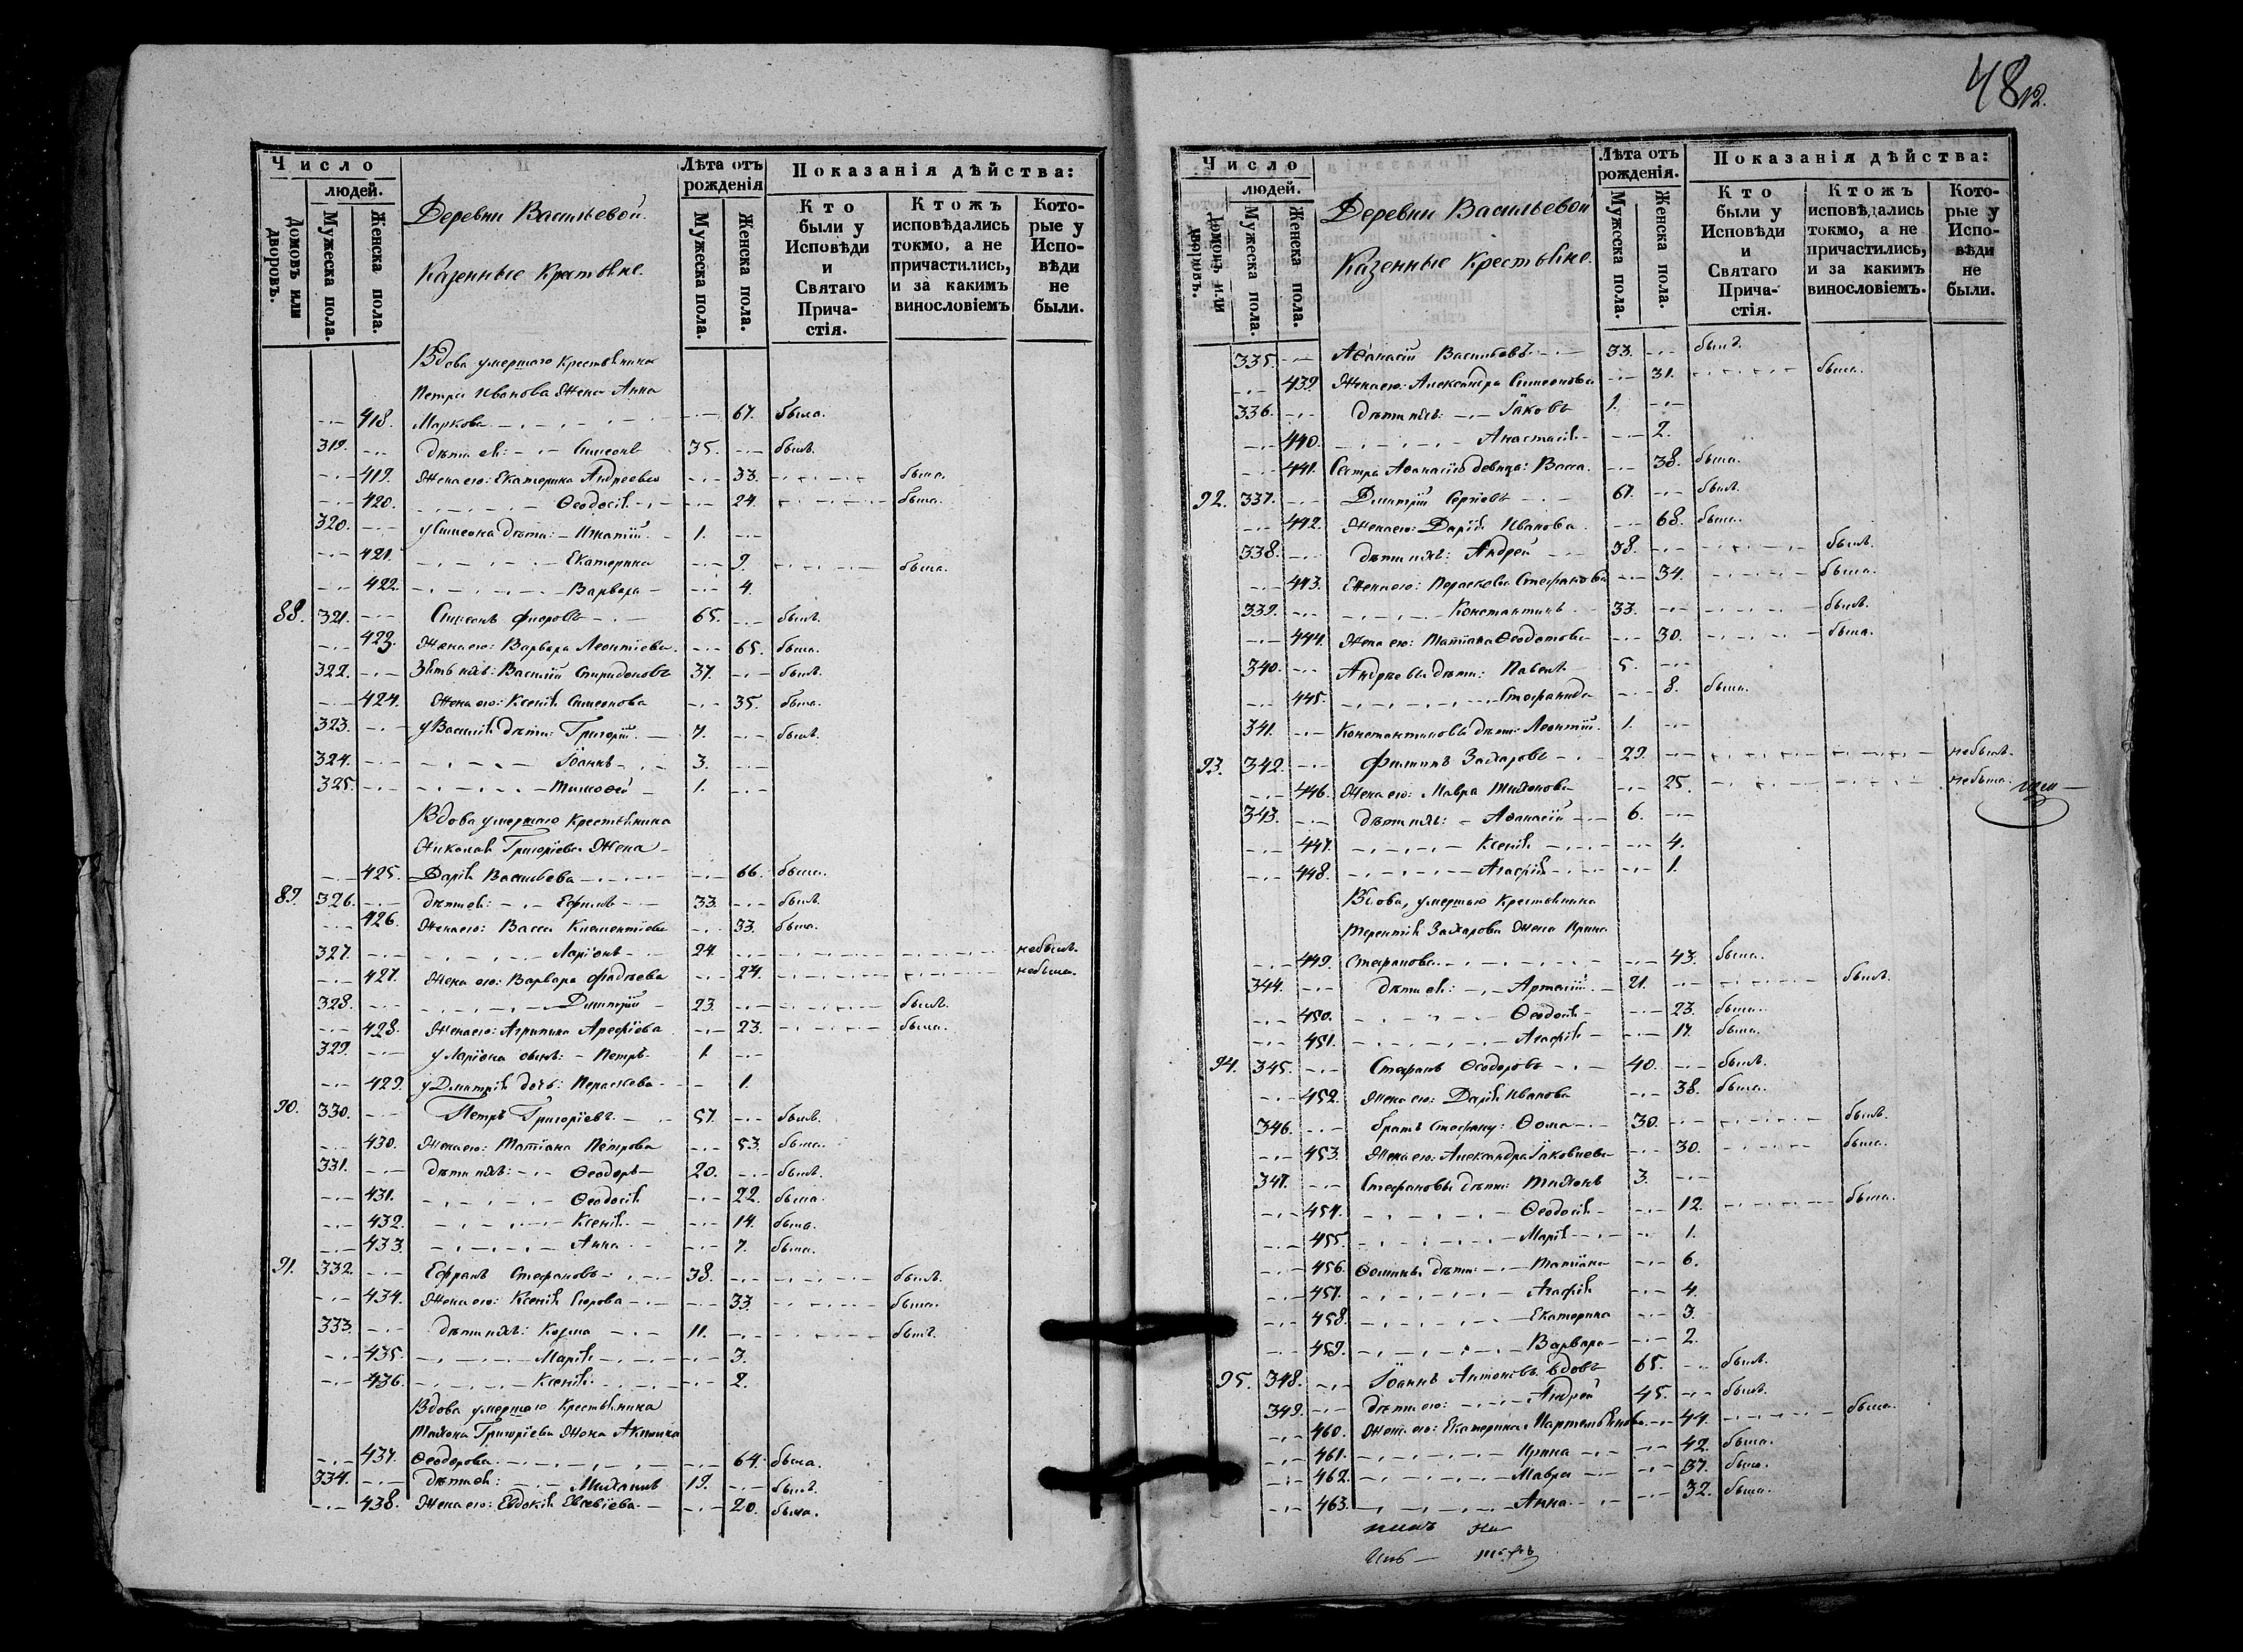 48 12.
Число
людей.
Домовъ или дворовъ.
Мужеска пола.
Женска пола.
Деревни Васильевой.
Казенные Крестьяне.
Лѣта отъ рожденія
Мужеска пола.
Женска пола.
Показанія дѣйства:
Кто были у Исповѣди и Святаго Прича-стія.
Ктожъ исповѣдались токмо, а не причастились, и за какимъ винословіемъ
Кото-рые у Испо-вѣди не были.
Вдова умершаго Крестьянина
Петра Иванова Жена Анна
418. Маркова 67. была.
319. Дѣти ея: Симеонъ 35. былъ.
419. Жена его: Екатерина Андреева 33. была.
420. Ѳеодосія 24. была.
320. у Симеона дѣти: Игнатій 1.
421. Екатерина 9. была.
422. Варвара 4.
88. 321. Симеонъ Фировъ 65. былъ.
423. Жена его: Варвара Леонтіева 65. была.
322. Зять ихъ: Василій Спиридоновъ 37. былъ.
424. Жена его: Ксенія Симеонова 35. была.
323. у Василія дѣти: Григорій 7. былъ.
324. Іоаннъ 3.
325. Тимоѳей 1.
Вдова умершаго Крестьянина
Николая Григоріева Жена
425. Дарія Васильева 66. была.
89. 326. Дѣти ея: Ефимъ 33. былъ.
426. Жена его: Васса Климентіева 33. была.
327. Ларіонъ 24. небылъ.
427. Жена его: Варвара Фадѣева 24. небыла.
328. Дмитрій 23. былъ.
428. Жена его: Агрипина Арефіева 23. была.
329. у Ларіона сынъ: Петръ 1.
429. у Дмитрія дочь: Параскева 1.
90. 330. Петръ Григоріевъ 57. былъ.
430. Жена его: Татіана Петрова 53. была.
331. Дѣти ихъ: Ѳеодоръ 20. былъ.
431. Ѳеодосія 22. была.
432. Ксенія 14. была.
433. Анна 7. была.
91. 332. Ефремъ Стефановъ 38. былъ.
434. Жена его: Ксенія Егорова 33. была.
333. Дѣти ихъ: Козма 11. былъ.
435. Марія 3.
436. Ксенія 2.
Вдова умершаго Крестьянина
Тихона Григоріева Жена Акилина
437. Ѳеодорова 64. была.
334. Дѣти ея: Михаилъ 19. былъ.
438. Жена его: Евдокія Евсевіева 20. была.
Число
людей.
Домовъ или дворовъ.
Мужеска пола.
Женска пола.
Деревни Васильевой
Казенные Крестьяне.
Лѣта отъ рожденія.
Мужеска пола.
Женска пола.
Показанія дѣйства:
Кто были у Исповѣди и Святаго Прича-стія.
Ктожъ исповѣдались токмо, а не причастились, и за какимъ винословіемъ.
Кото-рые у Испо-вѣди не были.
335. Аѳанасій Васильевъ 33. былъ.
439. Жена его: Александра Симеонова 31. была.
336. Дѣти ихъ: Іаковъ 1.
440. Анастасія 2.
441. Сестра Аѳанасія девица: Васса 38. была.
92. 337. Дмитрій Сергіевъ 67. былъ.
442. Жена его: Дарія Иванова 68. была.
338. Дѣти ихъ: Андрей 38. былъ.
443. Жена его: Параскева Стефанова 34. была.
339. Константинъ 33. былъ.
444. Жена его: Татіана Ѳеодотова 30. была.
340. Андреевы дѣти: Павелъ 5.
445. Стефанида 8. была.
341. Константиновы дѣти: Леонтій 1.
93. 342. Филипъ Захаровъ 29. небылъ.
446. Жена его: Мавра Тихонова 25. небыла.
343. Дѣти ихъ: Аѳанасій 6.
447. Ксенія 4.
448. Агафія 1.
Вдова, умершаго Крестьянина
Терентія Захарова Жена Ирина
449. Стефанова 43. была.
344. Дѣти ея: Артемій 21. былъ.
450. Ѳеодосія 23. была.
451. Агафія 17. была.
94. 345. Стефанъ Ѳеодоровъ 40. былъ.
452. Жена его: Дарія Иванова 38. была.
346. братъ Стефану: Ѳома 30. былъ.
453. Жена его: Александра Іаковлева 30. была.
347. Стефановы дѣти: Тихонъ 3.
454. Ѳеодосія 12. была.
455. Марія 1.
456. Ѳомины дѣти: Татіана 6.
457. Агафія 4.
458. Екатерина 3.
459. Варвара 2.
95. 348. Іоаннъ Антоновъ вдовъ 65. былъ.
349. дѣти его: Андрей 45. былъ.
460. Жена его: Екатерина Мартемьянова 44. была.
461. Ирина 42. была.
462. Мавра 37. была.
463. Анна 32. была.